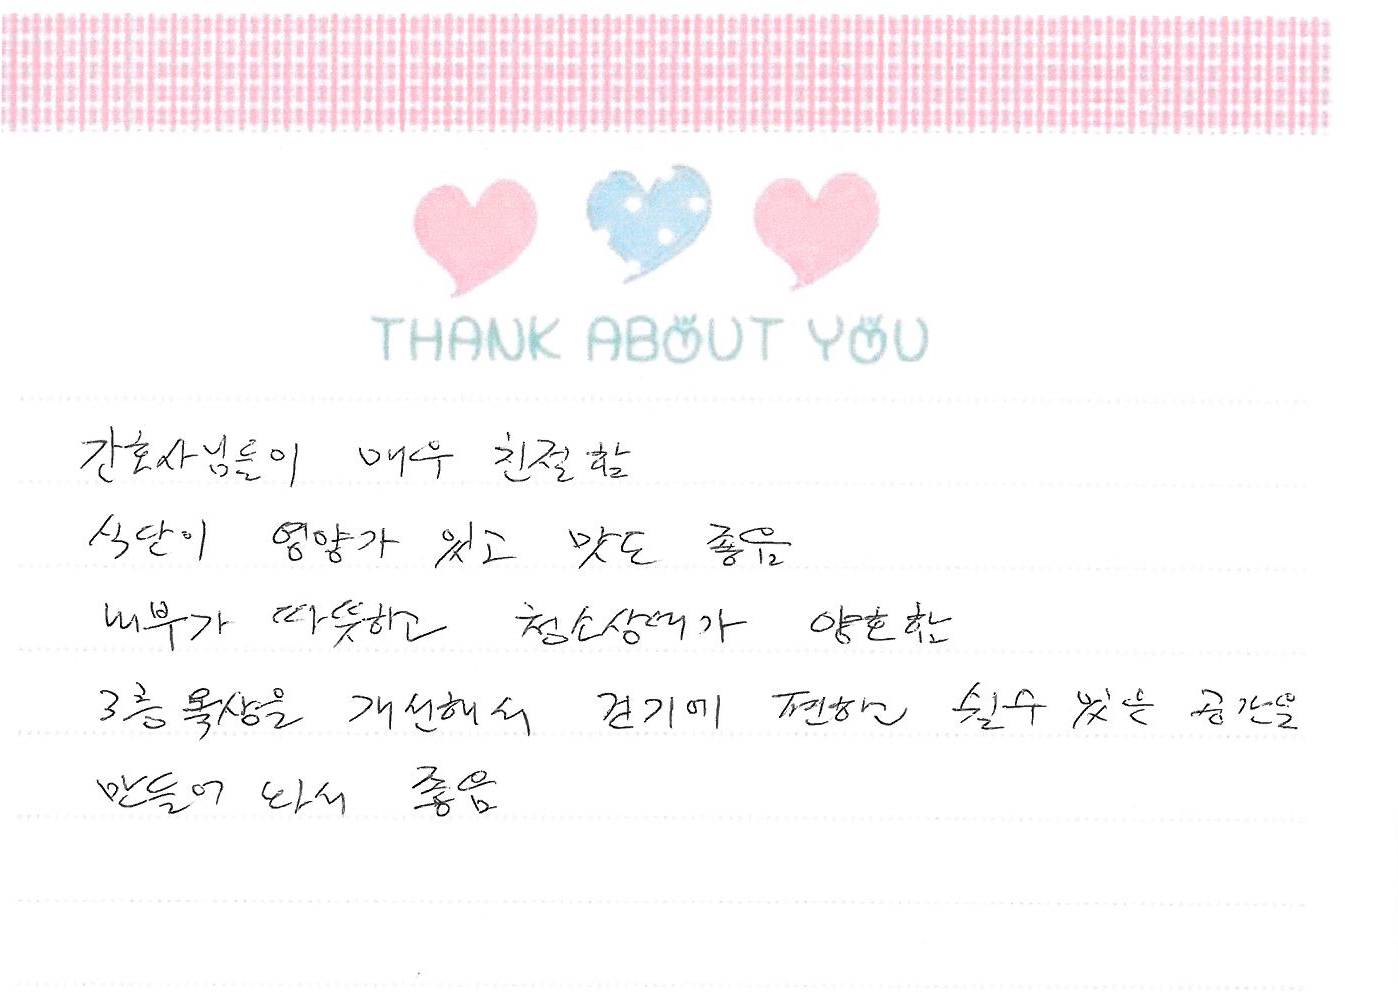 THANK ABOUT YOU
간호사님들이 매우 친절함
식단이 영양가 있고 맛도 좋음
내부가 따뜻하고 청소상태가 양호함
3층옥상을 개선해서 걷기에 편하고 쉴수 있는 공간을
만들어 놔서 좋음